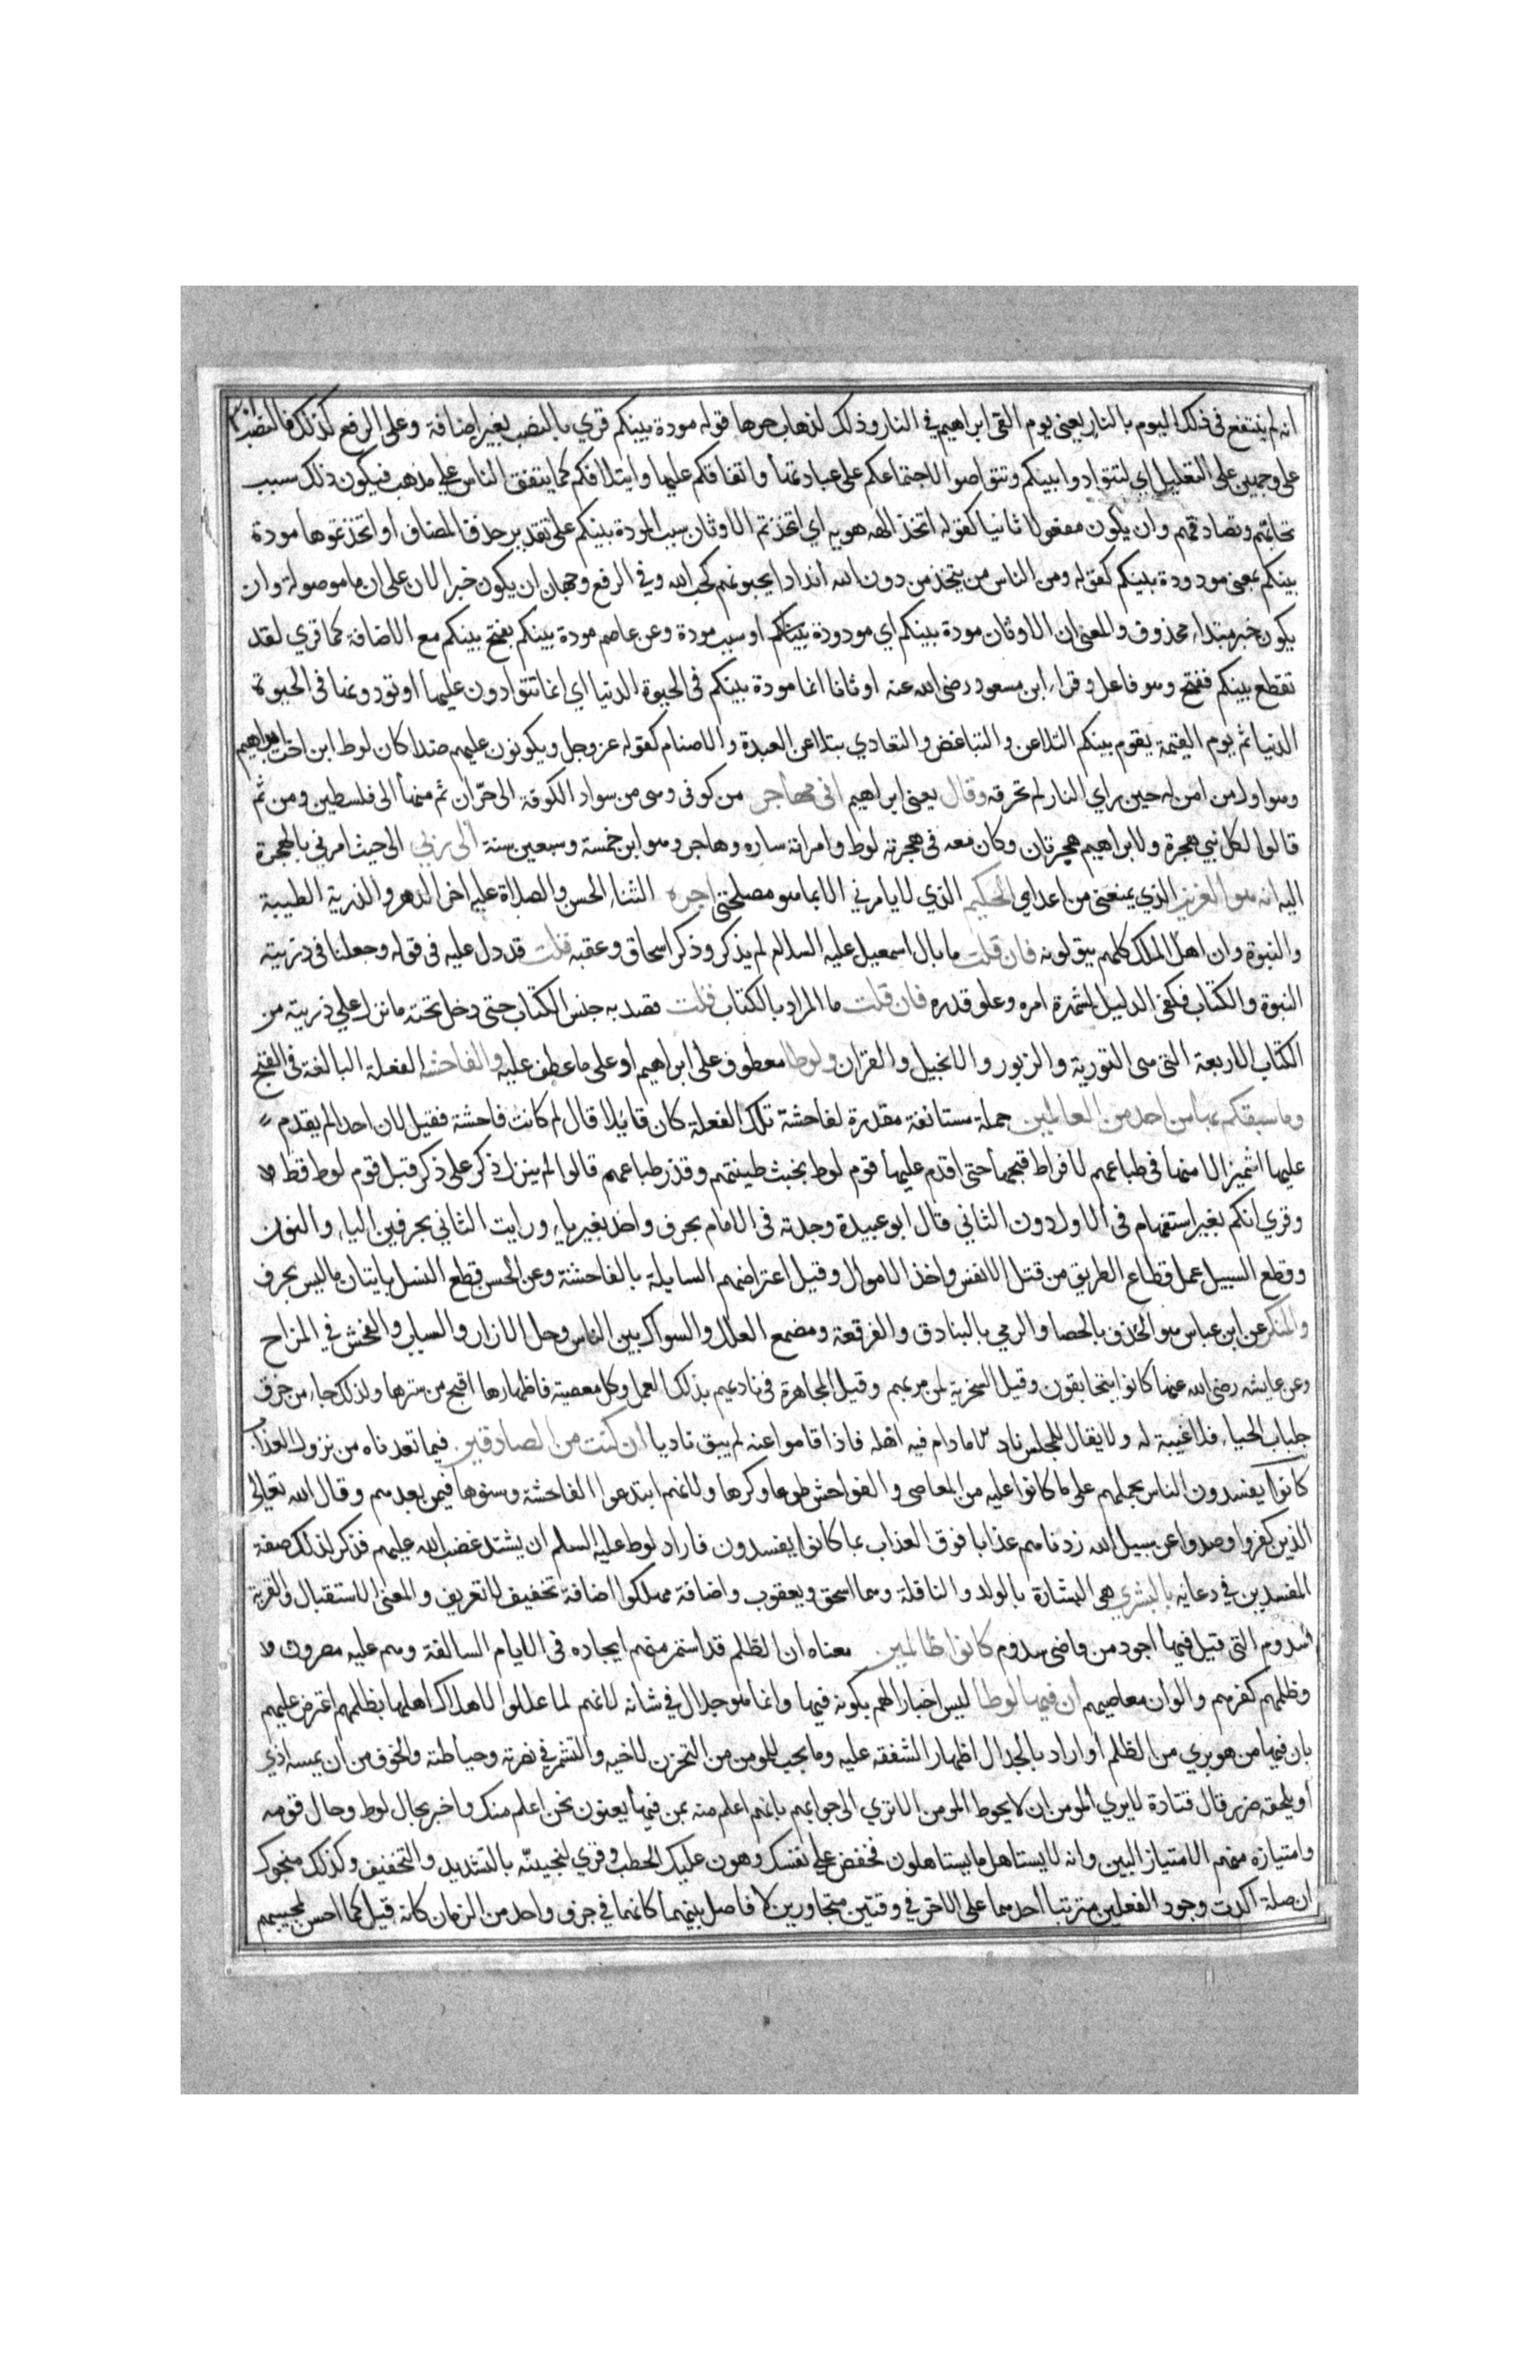 انه لم ينتفع فى ذلك اليوم بالنار يعنى يوم القى ابراهيم فى النار وذلك لذهاب حرها قوله مودة بينكم قري بالنصب بغير اضافة وعلى الرفع كذلك فالنصب
على وجهين على التعليل اي لتتوادوا بينكم وتتواصلوا لاجتماعكم على عبادتها واتفاقكم عليها وايتلافكم كما يتفق الناس على مذهب فيكون ذلك سبب
تحابهم وتصادقهم وان يكون مفعولا ثانيا كقوله اتخذ الهه هويه اي اتخذتم الاوثان سبب المودة بينكم على تقدير حذف المضاف او اتخذتموها مودة
بينكم بمعنى مودودة بينكم كقوله ومن الناس من يتخذ من دون الله اندادا يحبونهم كحب الله وفي الرفع وجهان ان يكون خبرا لان على ان ما موصولة وان
يكون خبر مبتداء محذوف والمعنى ان الاوثان مودة بينكم اي مودودة بينكم او سبب مودة وعن عاصم مودة بينكم بفتح بينكم مع الاضافة كما قري لقد
تقطع بينكم ففتح وهو فاعل وقراء ابن مسعود رضى الله عنه اوثانا انما مودة بينكم فى الحيوة الدنيا اي انما تتوادون عليها او تودونها فى الحيوة
الدنيا ثم يوم القيمة يقوم بينكم التلاعن والتباغض والتعادي يتلاعن العبدة والاصنام كقوله عز وجل ويكونون عليهم ضدا كان لوط ابن اخت ابراهيم
وهو اول من امن له حين راي النار لم تحرقه وقال يعنى ابراهيم انى مهاجر من كوثى وهى من سواد الكوفة الى حرّان ثم منها الى فلسطين ومن ثم
قالوا لكل نبي هجرة ولابراهيم هجرتان وكان معه فى هجرته لوط وامراته ساره وهاجر وهو ابن خمسة وسبعين سنة الى ربي الى حيث امرني بالهجرة
اليه انه هو العزيز الذي يمنعنى من اعداي الحكيم الذي لا يامرني الا بما هو مصلحتى اجره الثناء الحسن والصلاة عليه اخر الدهر والذرية الطيبة
والنبوة وان اهل الملل كلهم يتولونه فان قلت ما بال اسمعيل عليه السلام لم يذكر وذكر اسحاق وعقبه قلت قد دل عليه فى قوله وجعلنا فى ذريته
النبوة والكتاب فكفى الدليل لشهرة امره وعلو قدره فان قلت ما المراد بالكتاب قلت قصد به جنس الكتاب حتى دخل تحته ما نزل على ذريته من
الكتاب الاربعة التى هى التورية والزبور والانجيل والقران ولوطا معطوف على ابراهيم او على ما عطف عليه والفاحشه الفعلة البالغة فى القبح
وما سبقكم بها من احد من العالمين جملة مستانفة مقدرة لفاحشة تلك الفعلة كان قايلا قال لم كانت فاحشة فقيل لان احدا لم يقدم
عليها اشميزازا منها فى طباعهم لافراط قبحها حتى اقدم عليها قوم لوط بخبث طينتهم وقذر طباعهم قالوا لم ينزل ذكر على ذكر قبل قوم لوط قط
وقري انكم بغير استفهام فى الاول دون الثاني قال ابو عبيدة وجدته فى الامام بحرف واحد بغير ياء ورايت الثاني بحرفين الياء والنون
وقطع السبيل عمل قطاع الطريق من قتل الانفس واخذ الاموال وقيل اعتراضهم السايلة بالفاحشة وعن الحسن قطع النسل باتيان ما ليس بحرف
والمنكر عن ابن عباس هو الخذف بالحصا والرمي بالبنادق والفرقعة ومضغ العلك والسواك بين الناس وحل الازار والسباب والفحش في المزاح
وعن عايشه رضى الله عنها كانوا يتحابقون وقيل السخرية لمن مر بهم وقيل المجاهرة فى ناديهم بذلك العمل وكل معصية فاظهارها اقبح من سترها ولذلك جاء من خرق
جلباب الحياء فلا غيبة له ولا يقال للمجلس ناد الا ما دام فيه اهله فاذا قاموا عنه لم يبق ناديا ان كنت من الصادقين فيما تعدناه من نزول العذاب
كانوا يفسدون الناس بحملهم على ما كانوا عليه من المعاصى والفواحش طوعا وكرها ولانهم ابتدعوا الفاحشة وسنوها فيمن بعدهم وقال الله تعالى
الذين كفروا وصدوا عن سبيل الله زدناهم عذابا فوق العذاب بما كانوا يفسدون فاراد لوط عليه السلم ان يشتد غضب الله عليهم فذكر لذلك صفة
المفسدين في دعايه بالبشري هى البشارة بالولد والنافلة وهما اسحق ويعقوب واضافة مهلكوا اضافة تخفيف لا تعريف والمعنى الاستقبال والقرية
سدوم التى قيل فيها اجود من قاضى سدوم كانوا ظالمين معناه ان الظلم قد استمر منهم ايجاده فى الايام السالفة وهم عليه مصرون
وظلمهم كفرهم والوان معاصيهم ان فيها لوطا ليس اخبارا لهم بكونه فيها وانما هو جدال في شانه لانهم لما عللوا لاهلاك اهلها بظلمهم اعترض عليهم
بان فيها من هو بري من الظلم او اراد بالجدال اظهار الشفقه عليه وما يجب للمومن من التحزن لاخيه والتشمر في نصرته وحياطته والخوف من ان يمسه اذي
او يلحقه ضرر قال قتادة لا يري المومن ان لا يحوط المومن الا تري الى جوابهم بانهم اعلم منه بمن فيها يعنون نحن اعلم منك واخبر بحال لوط وحال قومه
وامتيازه منهم الامتياز البين وانه لا يستاهل ما يستاهلون فخفض على نفسك وهون عليك الخطب وقري لننجينّه بالتشديد والتخفيف وكذلك منجوك
ان صلة اكدت وجود الفعلين مترتبا احدهما على الاخر في وقتين متجاورين لا فاصل بينهما كانهما في جزء واحد من الزمان كانه قيل كما احس بمجيهم